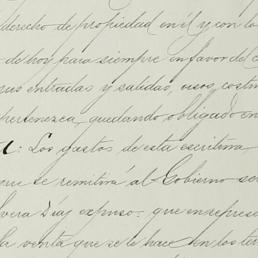 derecho de propiedad en él y con los
de hoy para siempre en favor del c
sus entradas y salidas, usos, costum
pertenezca, quedando obligado en
a: Los gastos de esta escritura,
que se remitirá al Gobierno ser
vera Díaz expuso: que en represe
la venta que se le hace en los tér